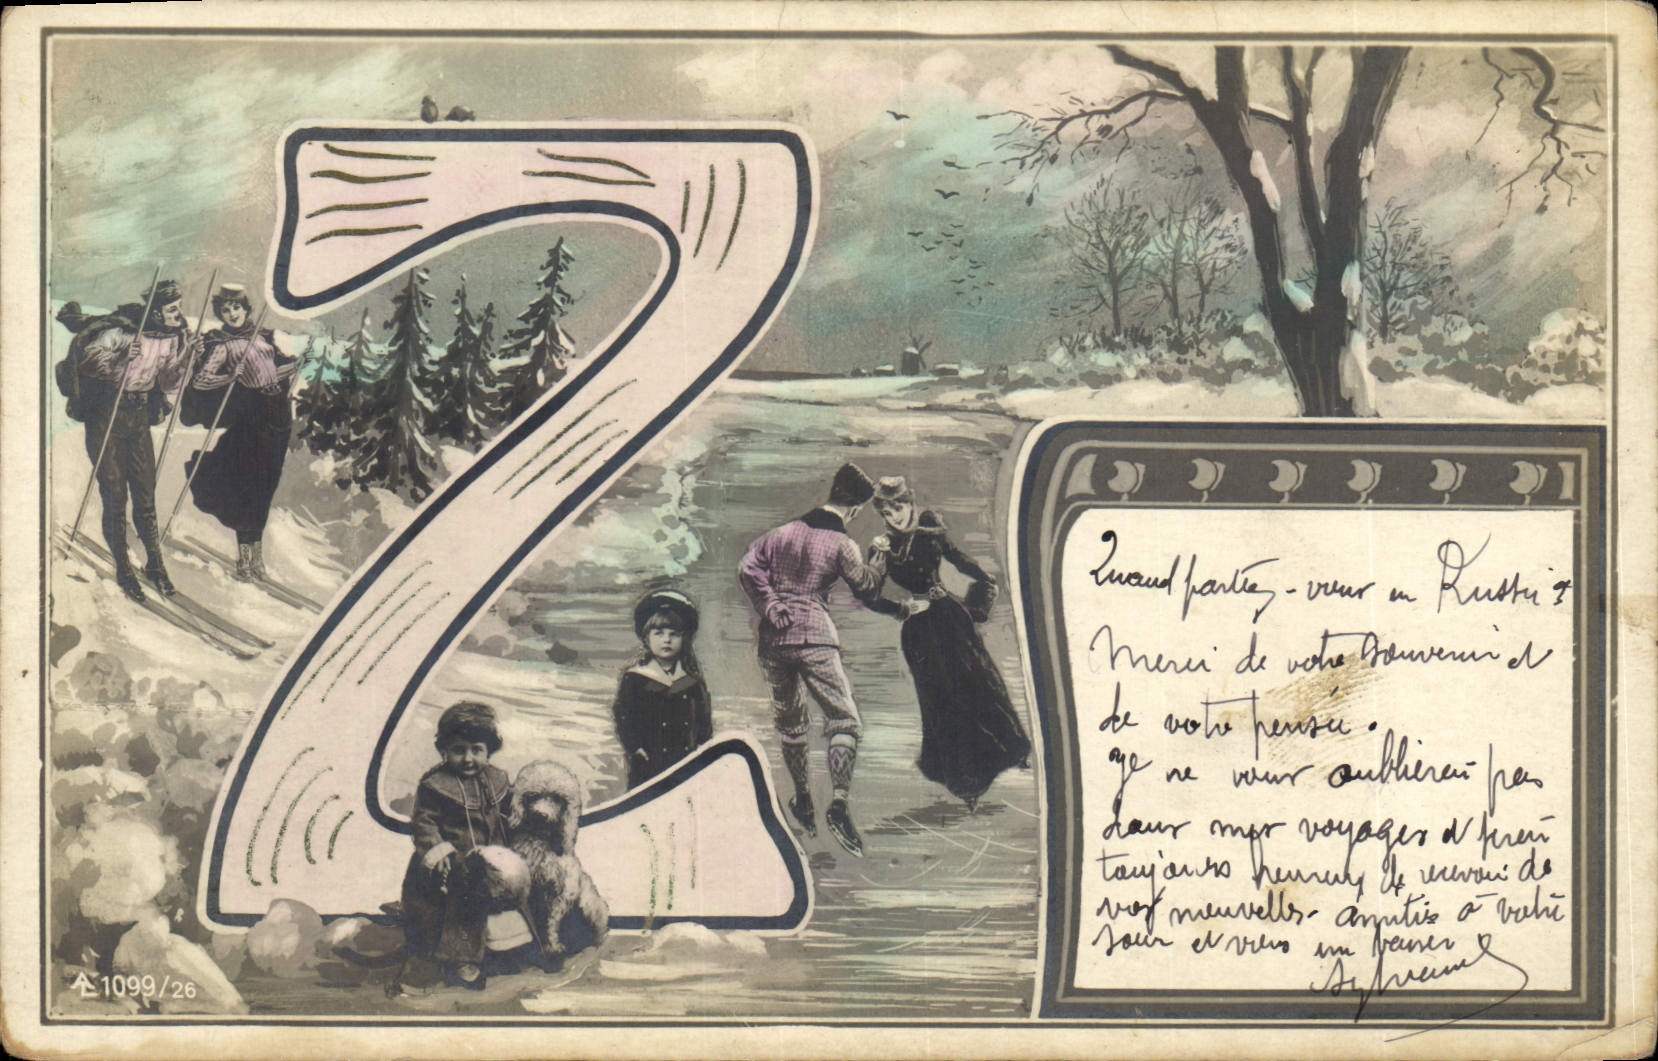 Z
Quand partez-vous en Russie?
Merci de votre souvenir et
de votre pensée.
Je ne vous oublierai pas
dans mes voyages et serai
toujours heureux de recevoir de
vos nouvelles. Amitiés à votre
soeur et vous un baiser
Sylvain
1099/26